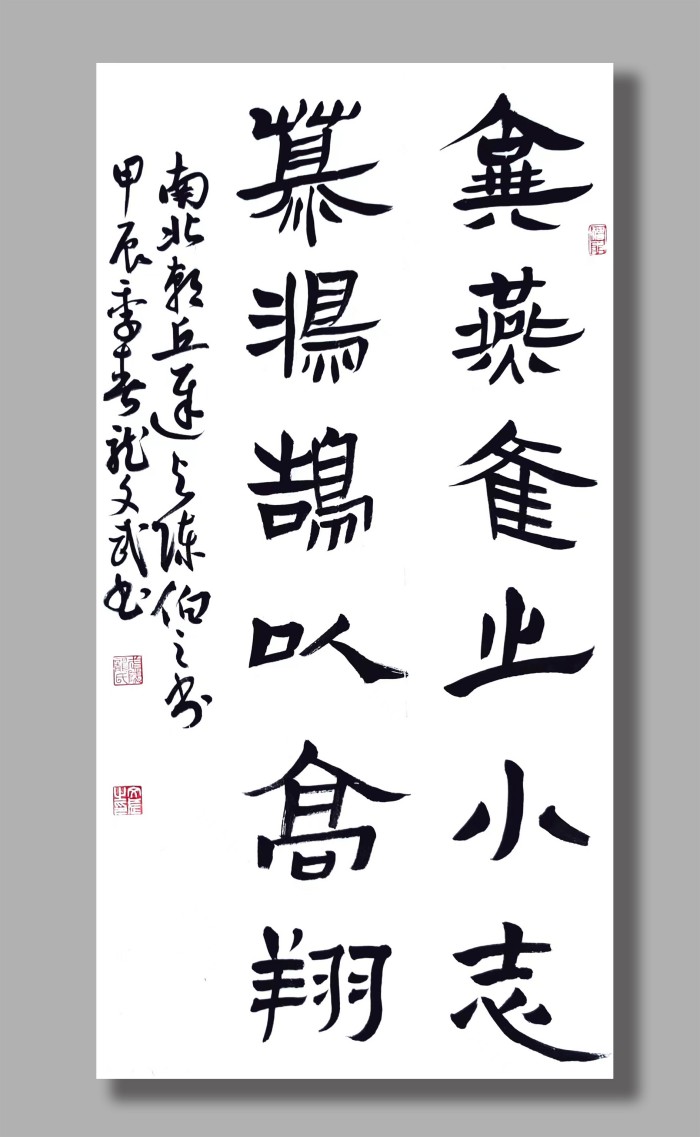 棄燕雀之小志
慕鴻鵠以高翔
南北朝丘遲与陳伯之书
甲辰季春龍文武书